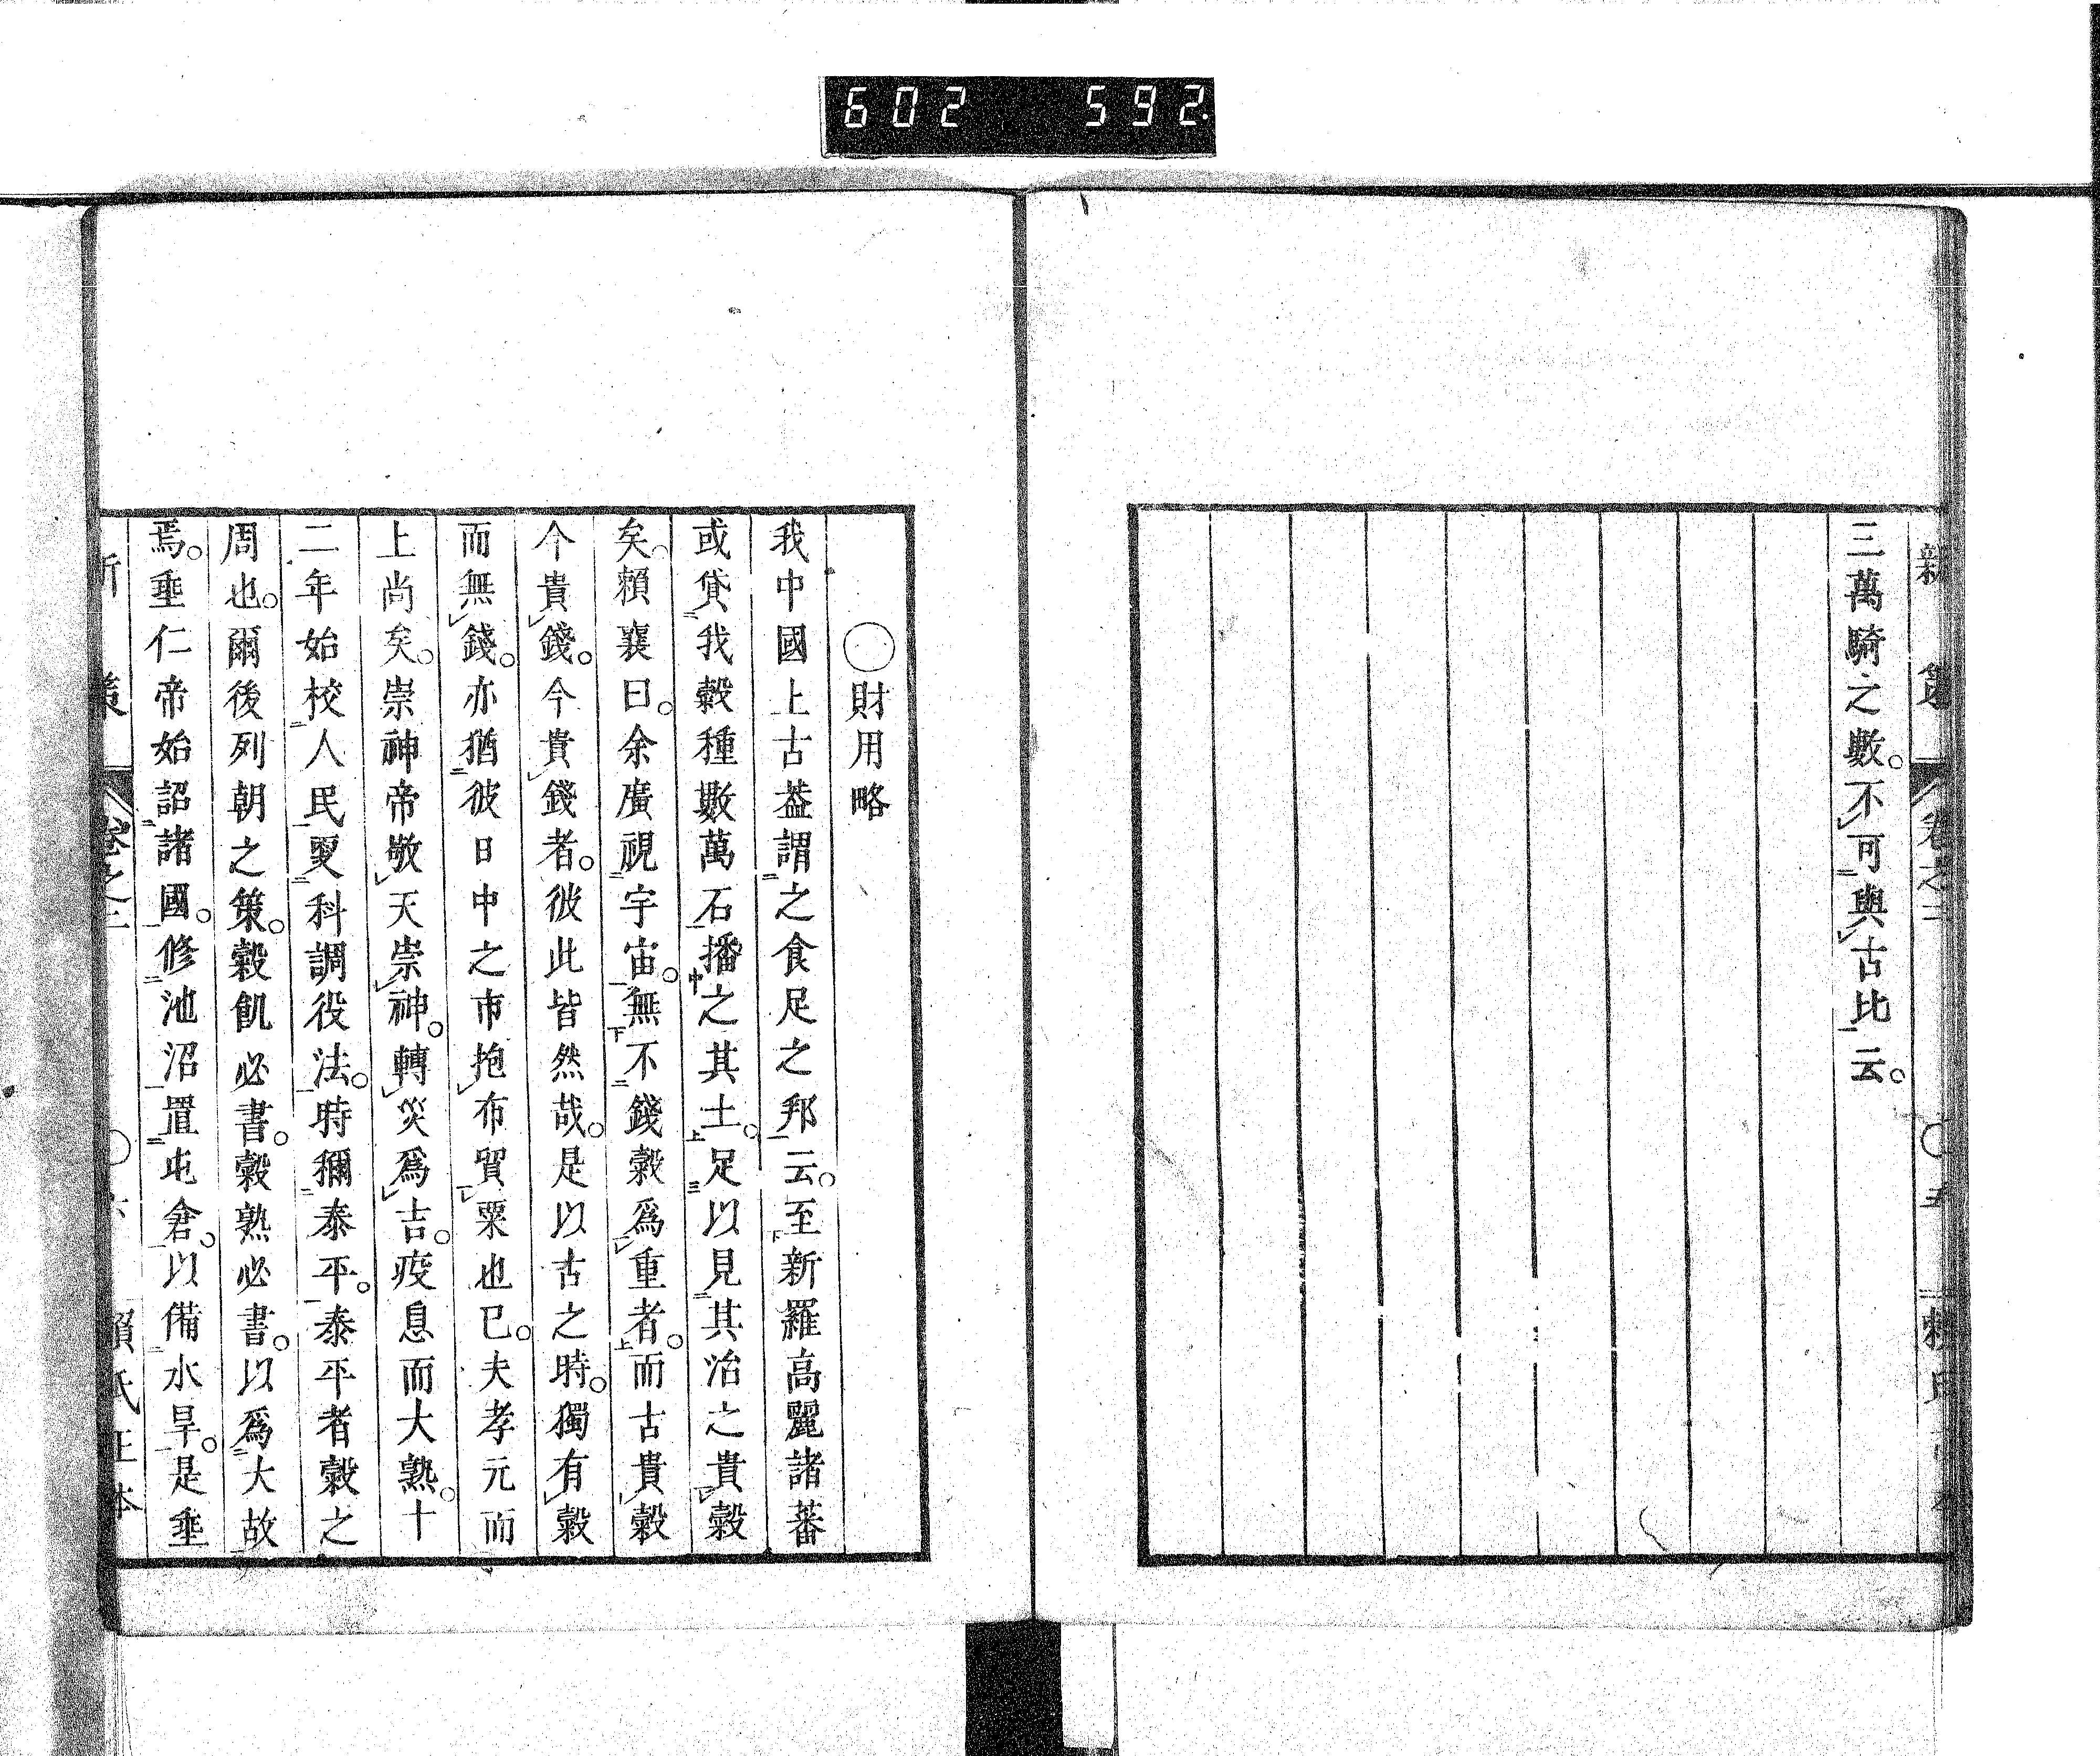 602 592
新策 卷之二 〇五 賴氏
三萬騎之數。不可與古比云。
〇財用略
我中國上古葢謂之食足之邦云。至新羅高麗諸蕃
或貸我穀種數萬石播之其土。足以見其治之貴穀
矣。賴襄曰。余廣視宇宙。無不錢穀爲重者。而古貴穀
今貴錢。今貴錢者。彼此皆然哉。是以古之時。獨有穀
而無錢。亦猶彼日中之市抱布貿粟也已。夫孝元而
上尚矣。崇神帝敬天崇神。轉災爲吉。疫息而大熟。十
二年始校人民更科調役法。時稱泰平。泰平者穀之
周也。爾後列朝之策。穀飢必書。穀熟必書。以爲大故
焉。垂仁帝始詔諸國。修池沼置屯倉。以備水旱。是垂
新策 卷之二 〇六 賴氏正本